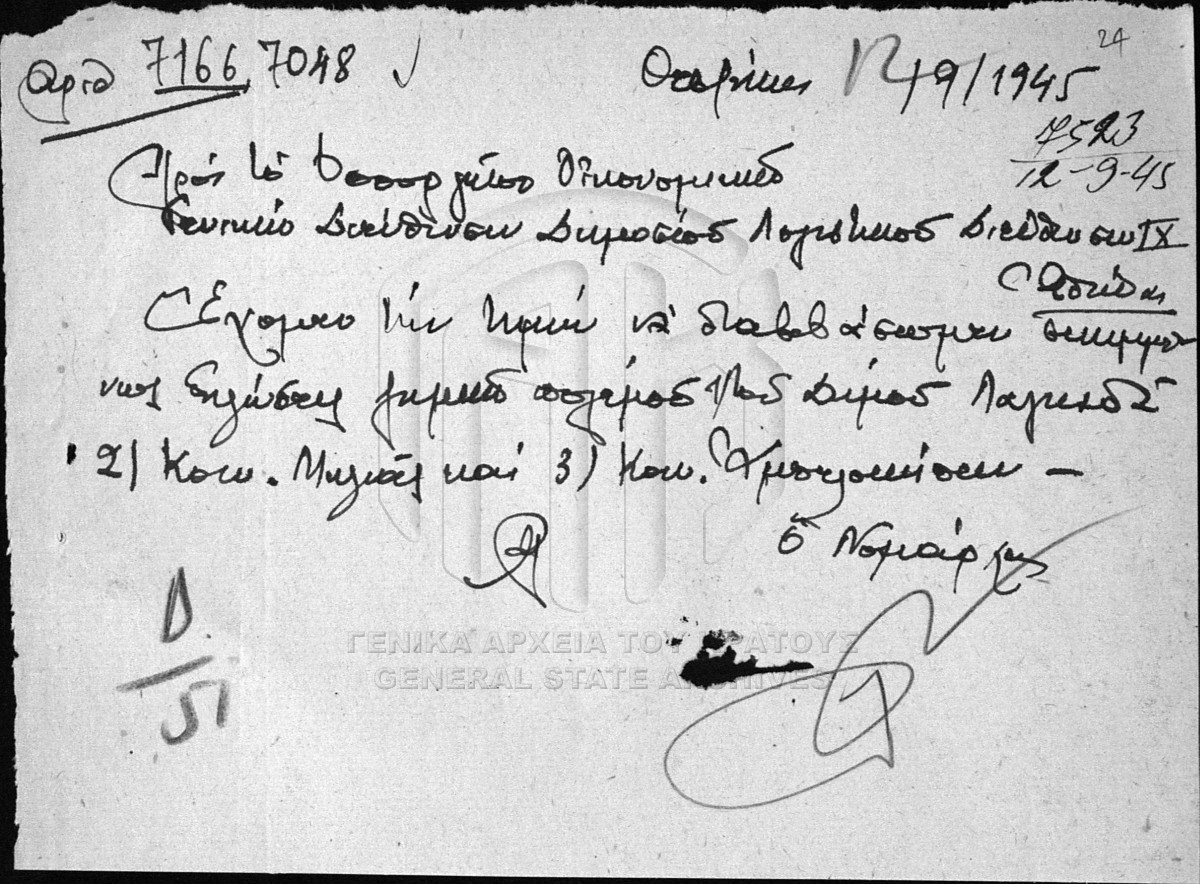 24
Αριθ 7166, 7048 Θεσ/νίκη 12/9/1945
7523
12-9-45
Πρός τό Υπουργείον Οικονομικών
Γενικήν Διεύθυνσιν Δημοσίου Λογιστικού Διεύθυνσιν IX
Αθήνας
Έχομεν τήν τιμήν νά διαβιβάσωμεν συνημμέ
νως δηλώσεις ζημιών πολέμου 1) τού Δήμου Λαγκαδά
2) Κοιν. Μηλιάς καί 3) Κοιν.
Ο Νομάρχης
Δ
51
ΓΕΝΙΚΑ ΑΡΧΕΙΑ ΤΟΥ ΚΡΑΤΟΥΣ
GENERAL STATE ARCHIVES